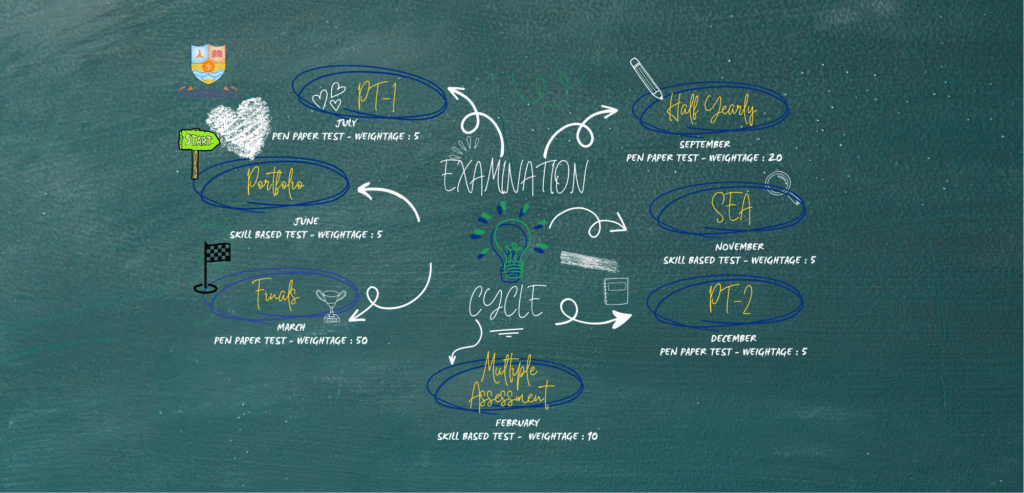 START
Portfolio
JUNE
SKILL BASED TEST - WEIGHTAGE : 5
PT-1
JULY
PEN PAPER TEST - WEIGHTAGE : 5
EXAMINATION
CYCLE
Half Yearly
SEPTEMBER
PEN PAPER TEST - WEIGHTAGE : 20
SEA
NOVEMBER
SKILL BASED TEST - WEIGHTAGE : 5
PT-2
DECEMBER
PEN PAPER TEST - WEIGHTAGE : 5
Multiple
Assessment
FEBRUARY
SKILL BASED TEST - WEIGHTAGE : 10
Finals
MARCH
PEN PAPER TEST - WEIGHTAGE : 50